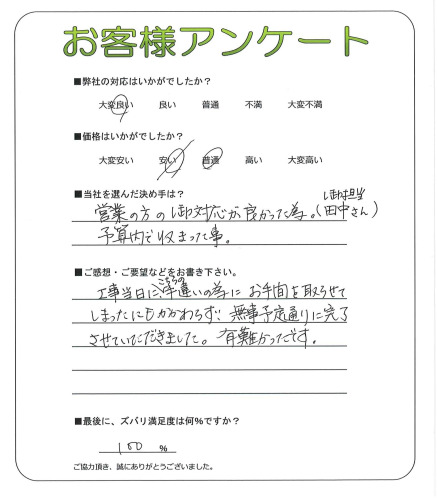 お客様アンケート
■弊社の対応はいかがでしたか？
大変良い 良い 普通 不満 大変不満
■価格はいかがでしたか？
大変安い 安い 普通 高い 大変高い
■当社を選んだ決め手は？
御社担当
営業の方の御対応が良かった為。（田中さん）
予算内で収まった事。
■ご感想・ご要望などをお書き下さい。
こちらの
工事当日に、手違いの為に お手間を取らせて
しまったにもかかわらず、無事予定通りに完了
させていただきました。有難かったです。
■最後に、ズバリ満足度は何％ですか？
100 ％
ご協力頂き、誠にありがとうございました。